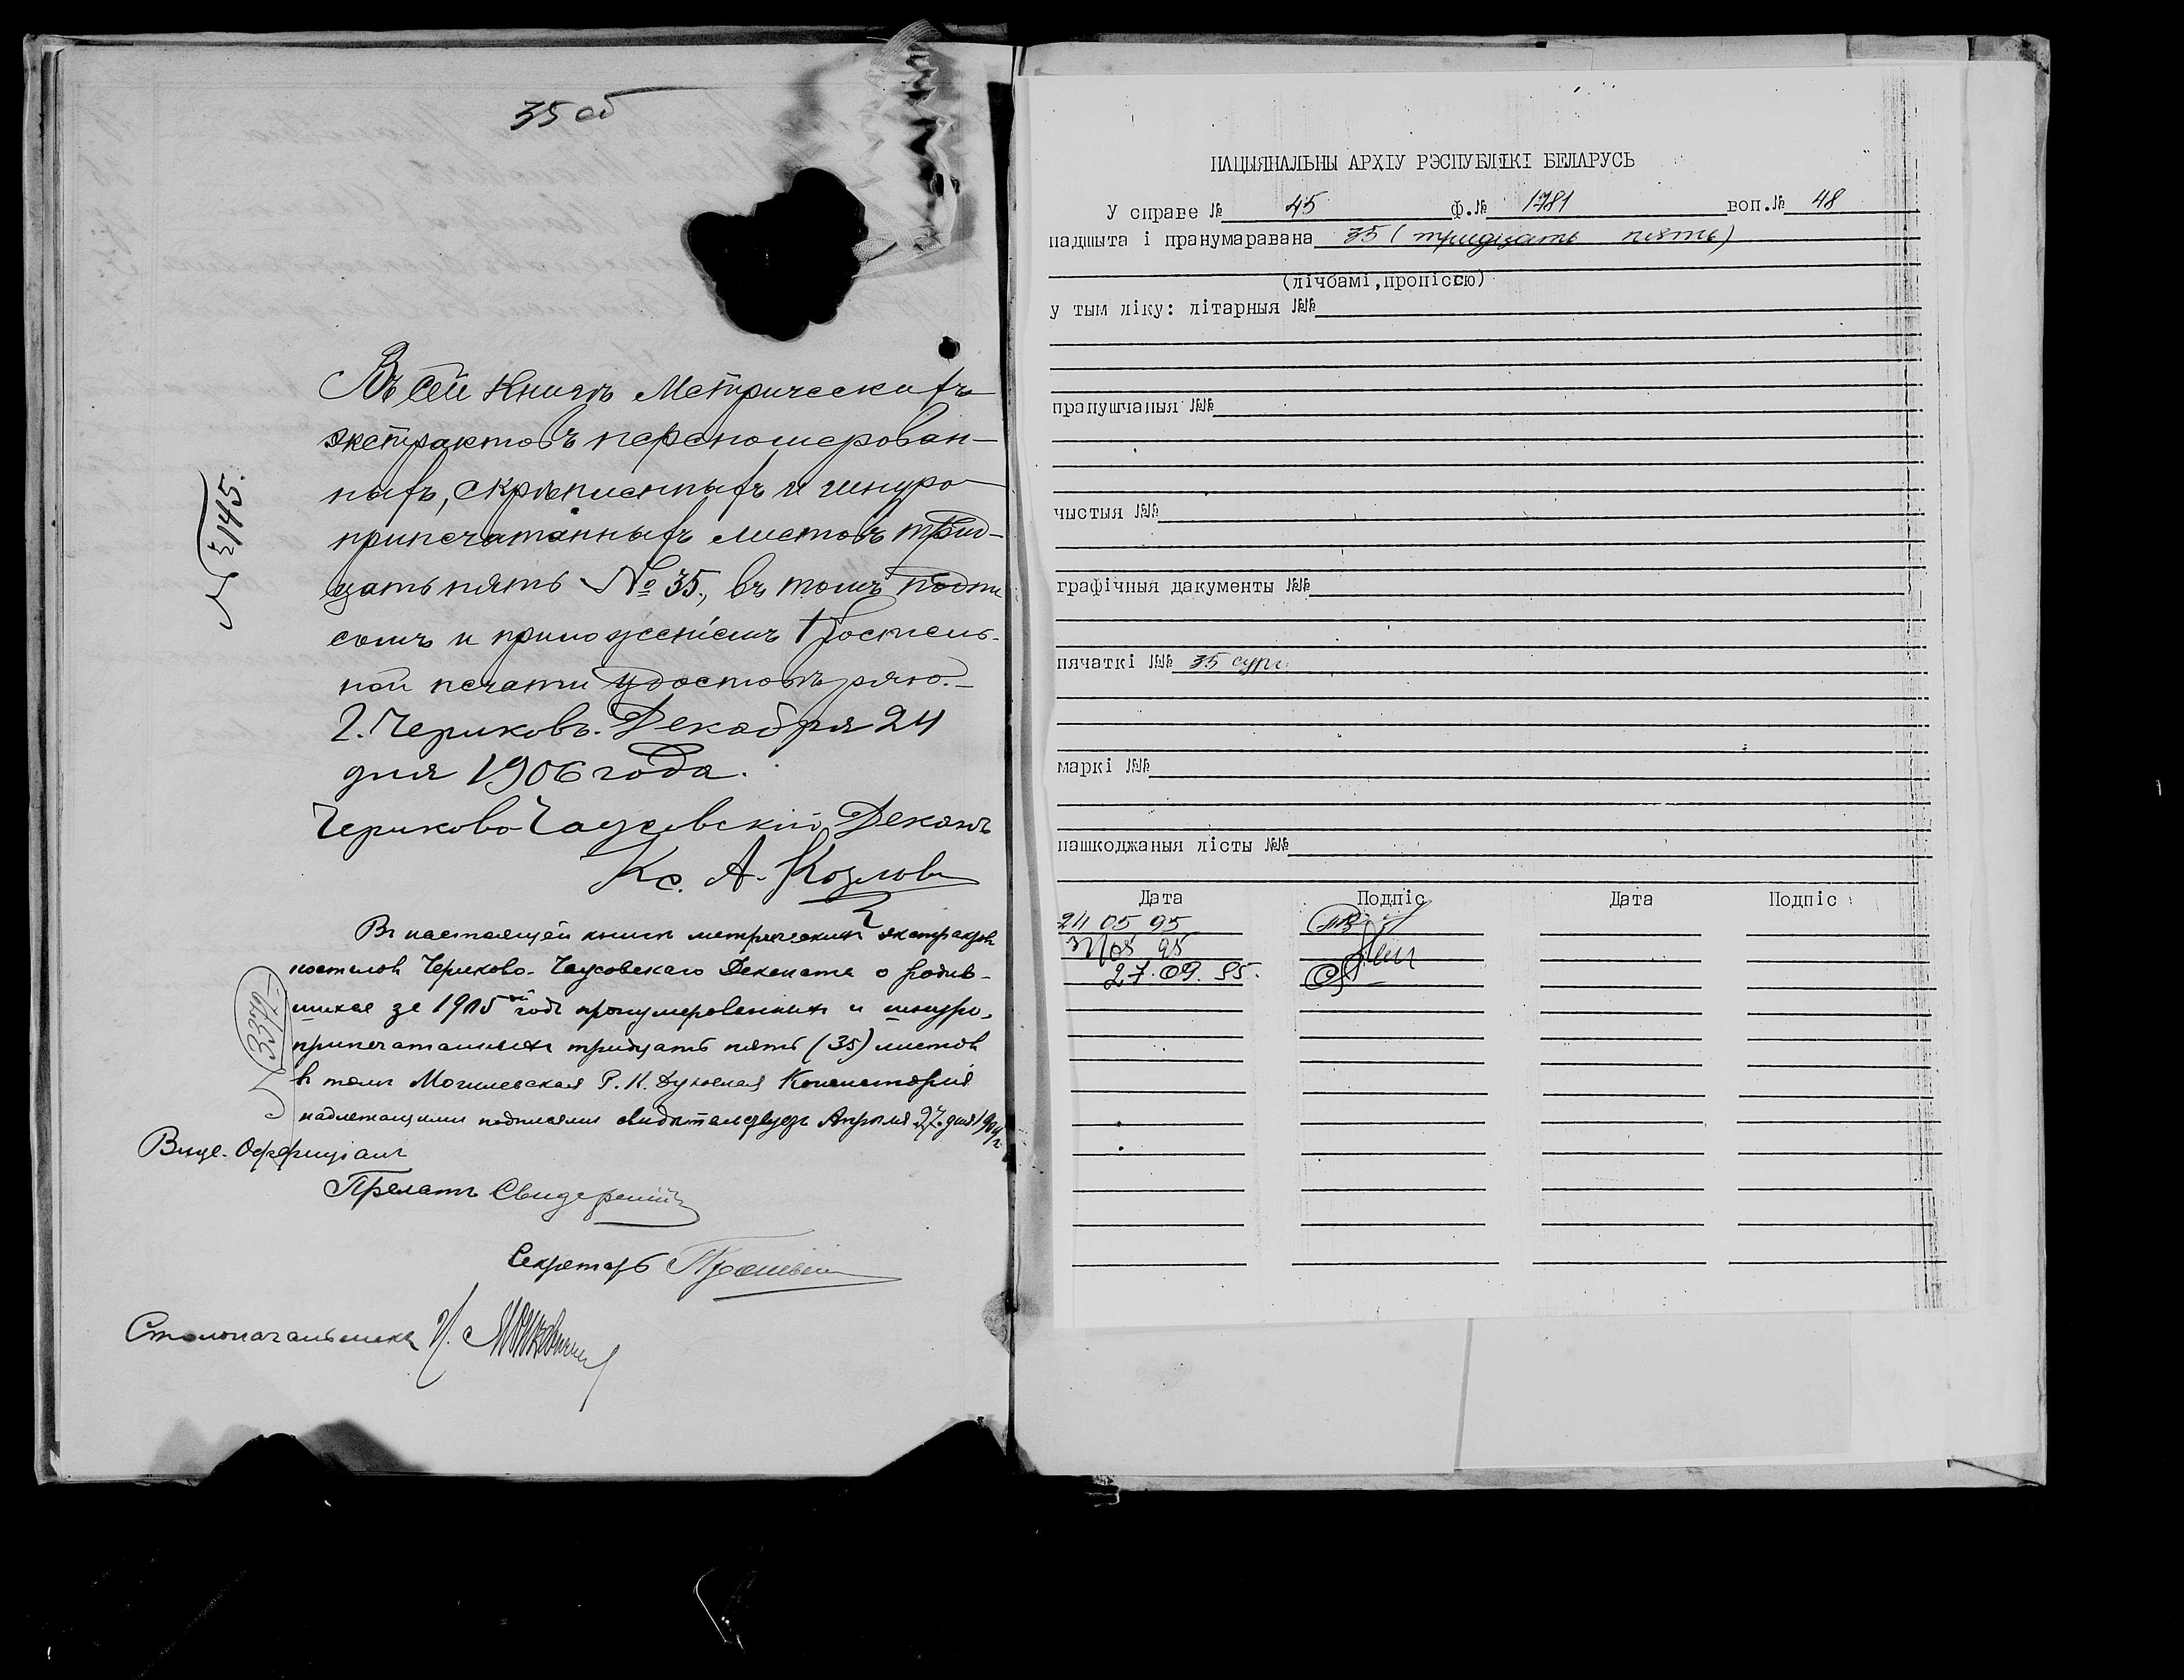 35 об
Въ сей Книгѣ Метрическихъ
экстрактовъ перепомерован-
ныхъ, скрѣпленныхъ и шнуро
припечатанныхъ листовъ трид-
цать пять № 35, въ томъ подпи
сомъ и приложеніемъ Костель-
ной печати удостовѣряю.-
Г. Чериковъ. Декабря 24
дня 1906 года.
Чериково-Чаусовскій Деканъ
Кс. А. Козлов
№ 145.
Въ настоящей книгѣ метрическихъ экстрактовъ
костелов Чериково-Чаусовскаго Деканата о родив-
шихся за 1905 ый годъ пронумерованныхъ и шнуро-
припечатанныхъ тридцать пять (35) листовъ
въ томъ Могилевская Р. К. Духовная Консисторія
надлежащими подписями свидѣтельствуетъ Апрѣля 27 дня
Вице-Оффиціалъ
Прелатъ
Секретарь
Столоначальника
НАЦЫЯНАЛЬНЫ АРХІУ РЭСПУБЛІКІ БЕЛАРУСЬ
У справе № 45 ф.№ 1781 воп.№ 48
падшыта і пранумаравана 35 (тридцать пять)
(лічбамі,пропіссю)
у тым ліку: літарныя №№
прапушчаныя №№
чыстыя №№
графічныя дакументы №№
пячаткі №№ 35 сург.
маркі №№
пашкоджаныя лісты №№
Дата Подпіс Дата Подпіс
24 05 95
27.09.95.